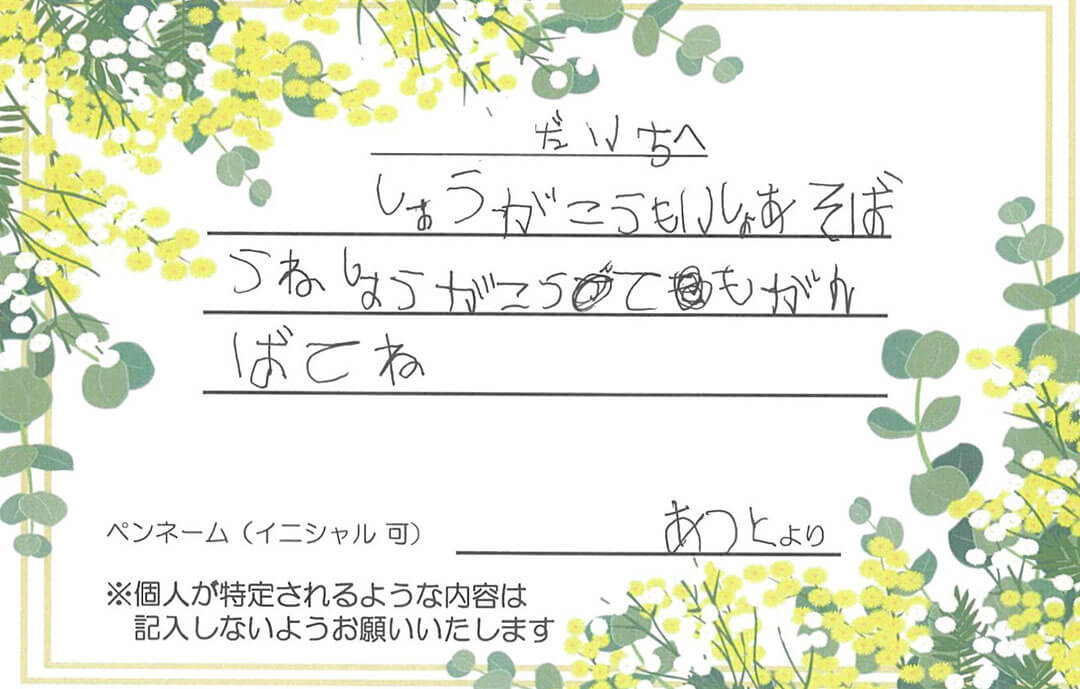 だいちへ
しょうがこうもいしょあそば
うねしょうがこうてもがん
ばてね
ペンネーム（イニシャル 可）
あつとより
※個人が特定されるような内容は
記入しないようお願いいたします